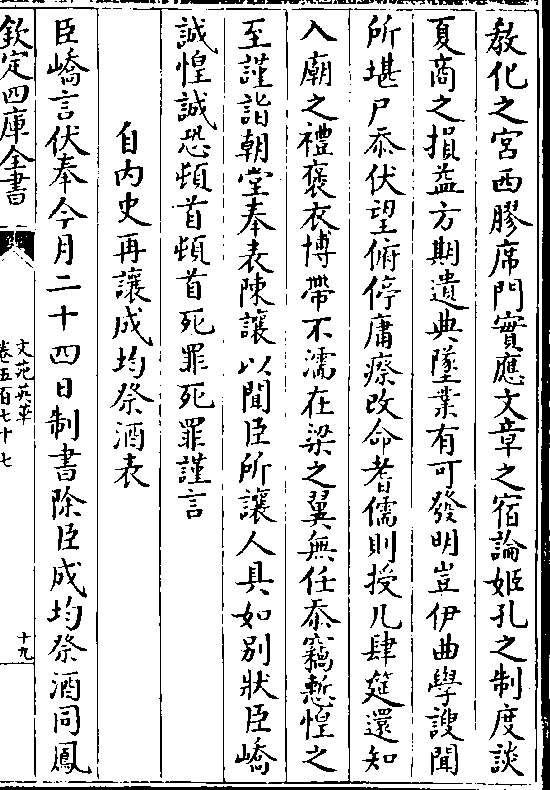 教化之宮西膠席門實應文章之宿論姬孔之制度談
夏商之損益方期遺典墜業有可發明豈伊曲學謏聞
所堪尸忝伏望俯停庸瘵改命耆儒則授几肆筵還知
入廟之禮褒衣博帶不濡在梁之翼無任忝竊慙惶之
至謹詣朝堂奉表陳讓以聞臣所讓人具如別狀臣嶠
誠惶誠恐頓首頓首死罪死罪謹言
自內史再讓成均祭酒表
臣嶠言伏奉今月二十四日制書除臣成均祭酒同鳳
欽定四庫全書
文苑英華
卷五百七十七
十九